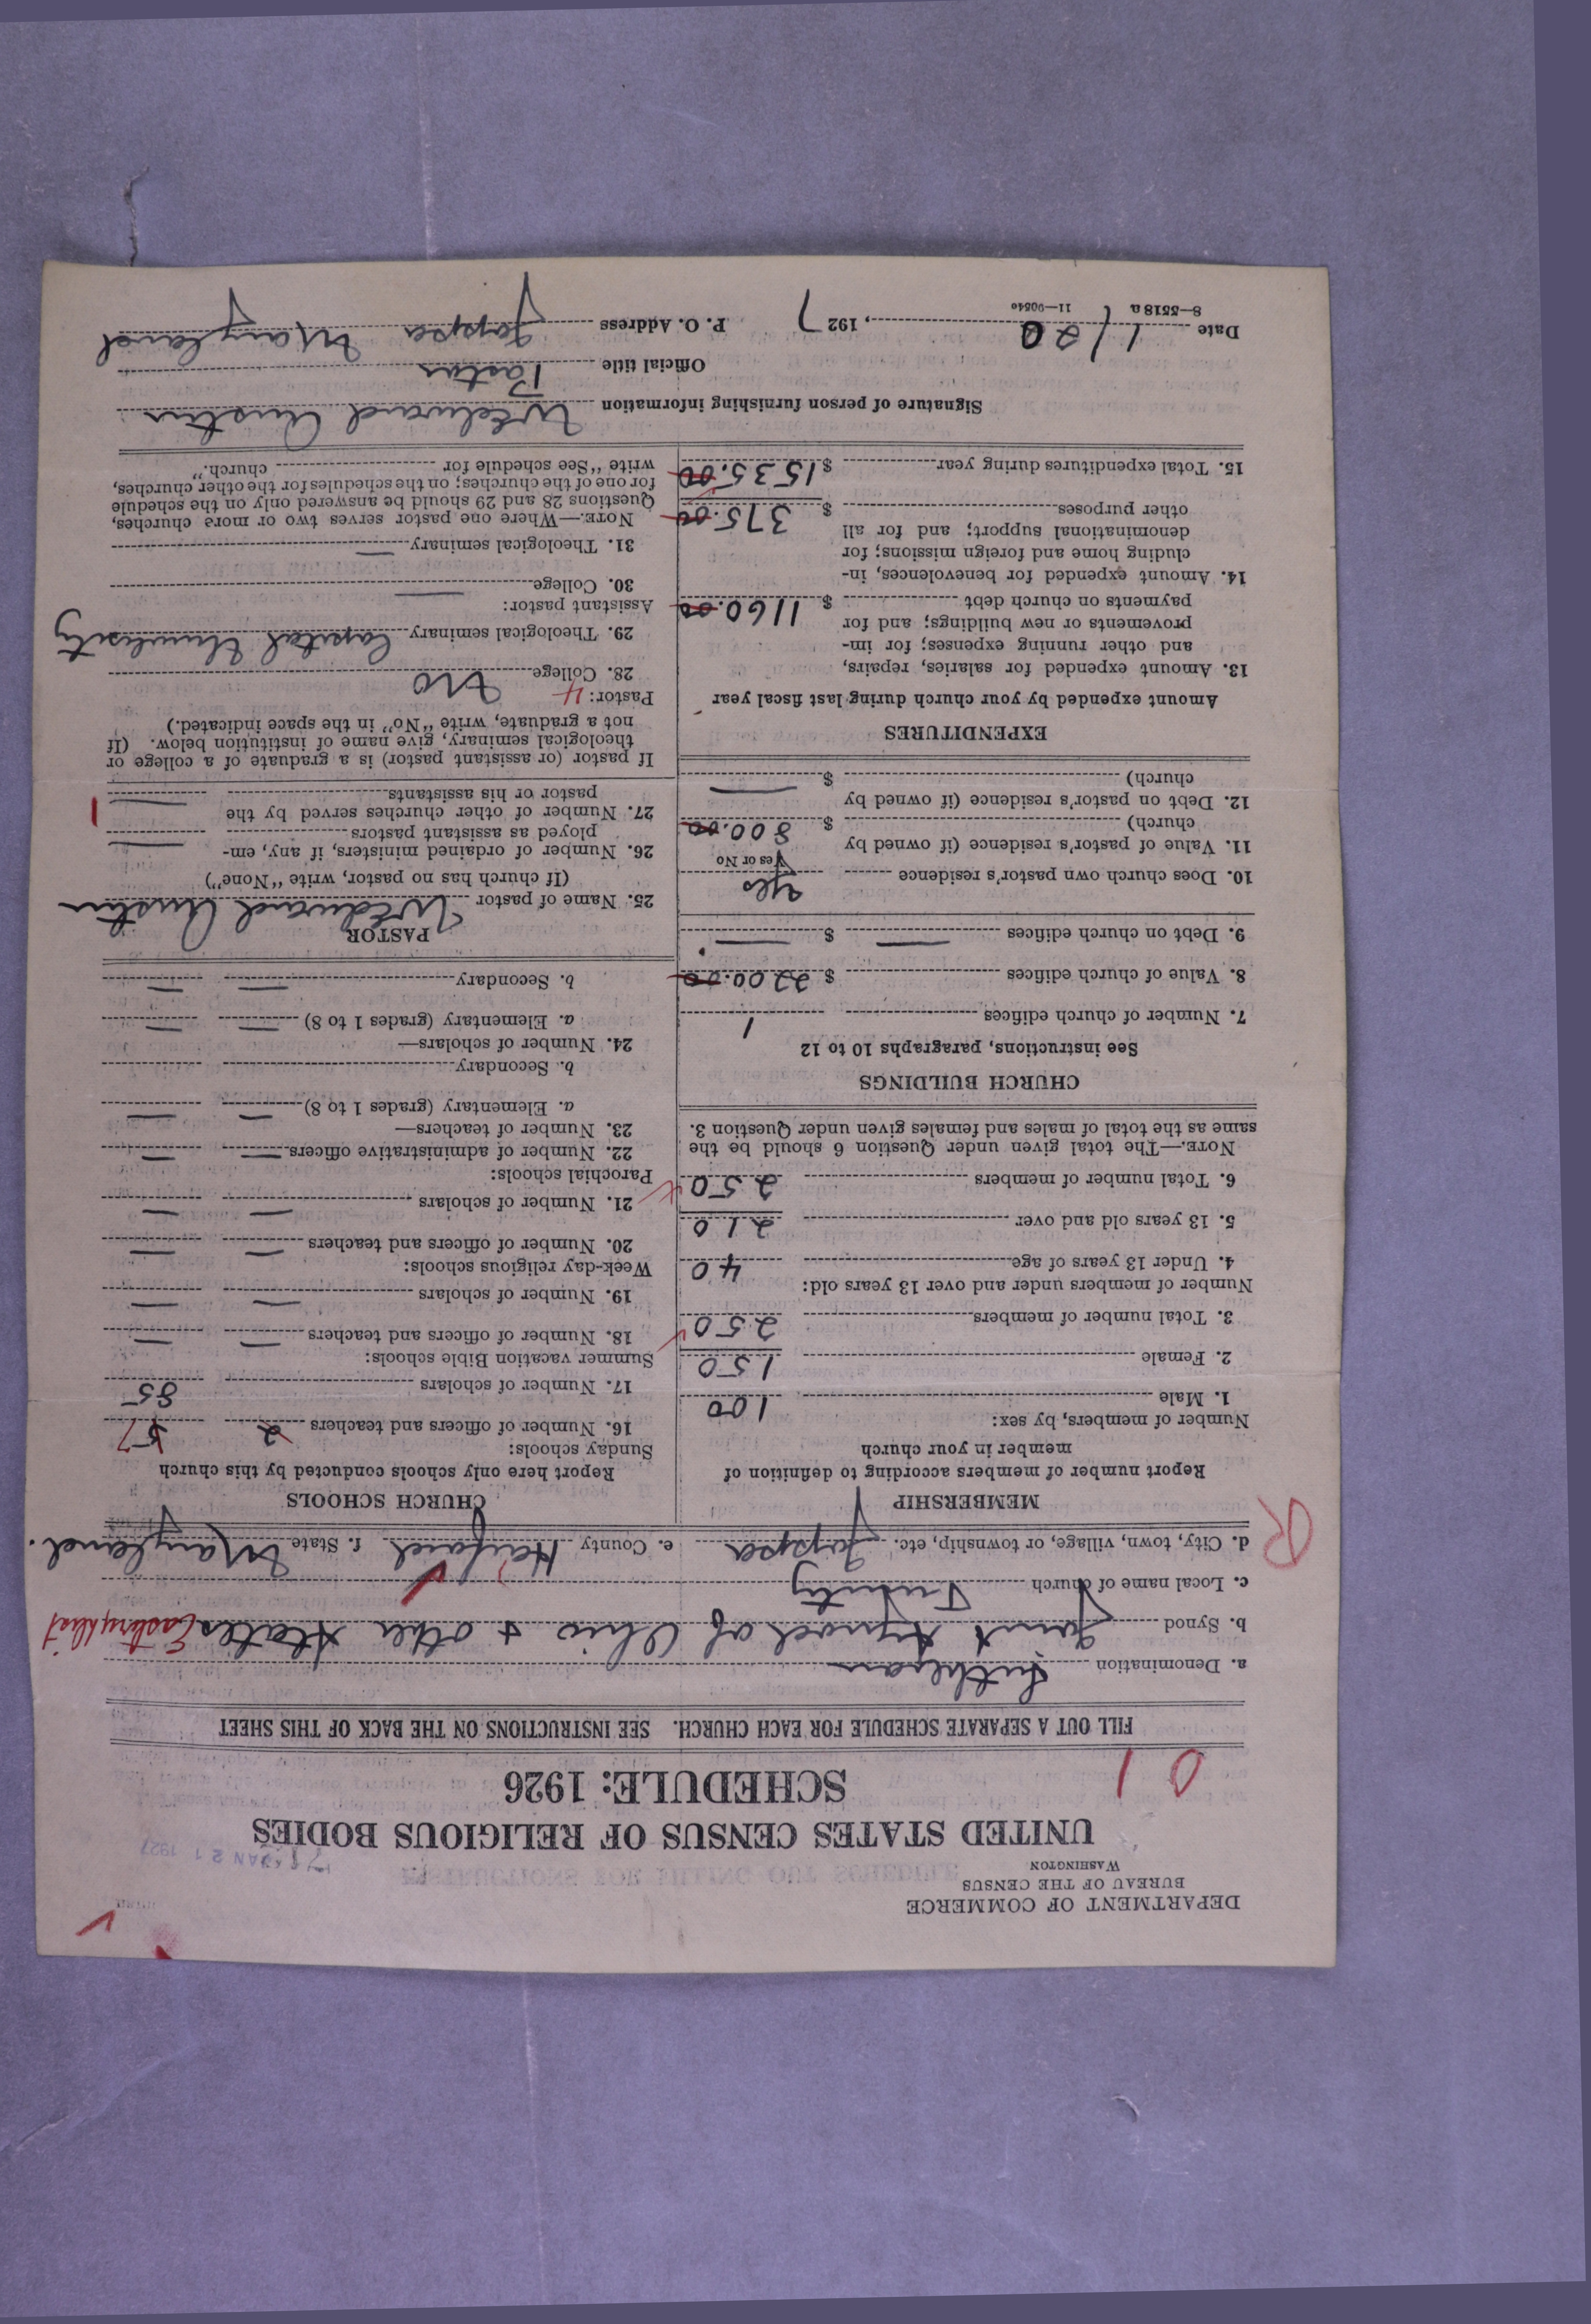 DEPARTMENT OF COMMERCE
BUREAU OF THE CENSUS
WASHINGTON
JAN 21 1927
UNITED STATES CENSUS OF RELIGIOUS BODIES
SCHEDULE: 1926
0 1
FILL OUT A SEPARATE SCHEDULE FOR EACH CHURCH. SEE INSTRUCTIONS ON THE BACK OF THIS SHEET
a. Denomination Lutheran
b. Synod Joint Synod of Ohio + other States
c. Local name of church Trinity
d. City, town, village, or township, etc. Joppa e. County Harford f. State Maryland.
R
MEMBERSHIP
Report number of members according to definition of
member in your church
Number of members, by sex:
1. Male 100
2. Female 150
3. Total number of members 250
Number of members under and over 13 years old:
4. Under 13 years of age 40
5. 13 years old and over 210
6. Total number of members 250
NOTE.—The total given under Question 6 should be the
same as the total of males and females given under Question 3.
CHURCH BUILDINGS
See instructions, paragraphs 10 to 12
7. Number of church edifices 1
8. Value of church edifices $ 2200.00
9. Debt on church edifices — $ —
10. Does church own pastor's residence Yes
Yes or No
11. Value of pastor's residence (if owned by
church) $ 800.00
12. Debt on pastor's residence (if owned by
church) $ —
EXPENDITURES
Amount expended by your church during last fiscal year
13. Amount expended for salaries, repairs,
and other running expenses; for im-
provements or new buildings; and for
payments on church debt $ 1160.00
14. Amount expended for benevolences, in-
cluding home and foreign missions; for
denominational support; and for all
other purposes $ 375.00
15. Total expenditures during year $ 1535.00
CHURCH SCHOOLS
Report here only schools conducted by this church
Sunday schools:
16. Number of officers and teachers 2 7
17. Number of scholars 85
Summer vacation Bible schools:
18. Number of officers and teachers — —
19. Number of scholars — —
Week-day religious schools:
20. Number of officers and teachers — —
21. Number of scholars — —
Parochial schools:
22. Number of administrative officers — —
23. Number of teachers—
a. Elementary (grades 1 to 8) — —
b. Secondary
24. Number of scholars—
a. Elementary (grades 1 to 8) — —
b. Secondary — —
PASTOR
25. Name of pastor W Edward Austin
(If church has no pastor, write "None")
26. Number of ordained ministers, if any, em-
ployed as assistant pastors —
27. Number of other churches served by the
pastor or his assistants — 1
If pastor (or assistant pastor) is a graduate of a college or
theological seminary, give name of institution below. (If
not a graduate, write "No" in the space indicated.)
Pastor: 4
28. College No
29. Theological seminary Capital University
Assistant pastor:
30. College —
31. Theological seminary —
NOTE.—Where one pastor serves two or more churches,
Questions 28 and 29 should be answered only on the schedule
for one of the churches; on the schedules for the other churches,
write "See schedule for church."
Signature of person furnishing information W Edward Austin
Official title Pastor
Date 1/20, 1927 P. O. Address Joppa Maryland
8—5518a 11—90540